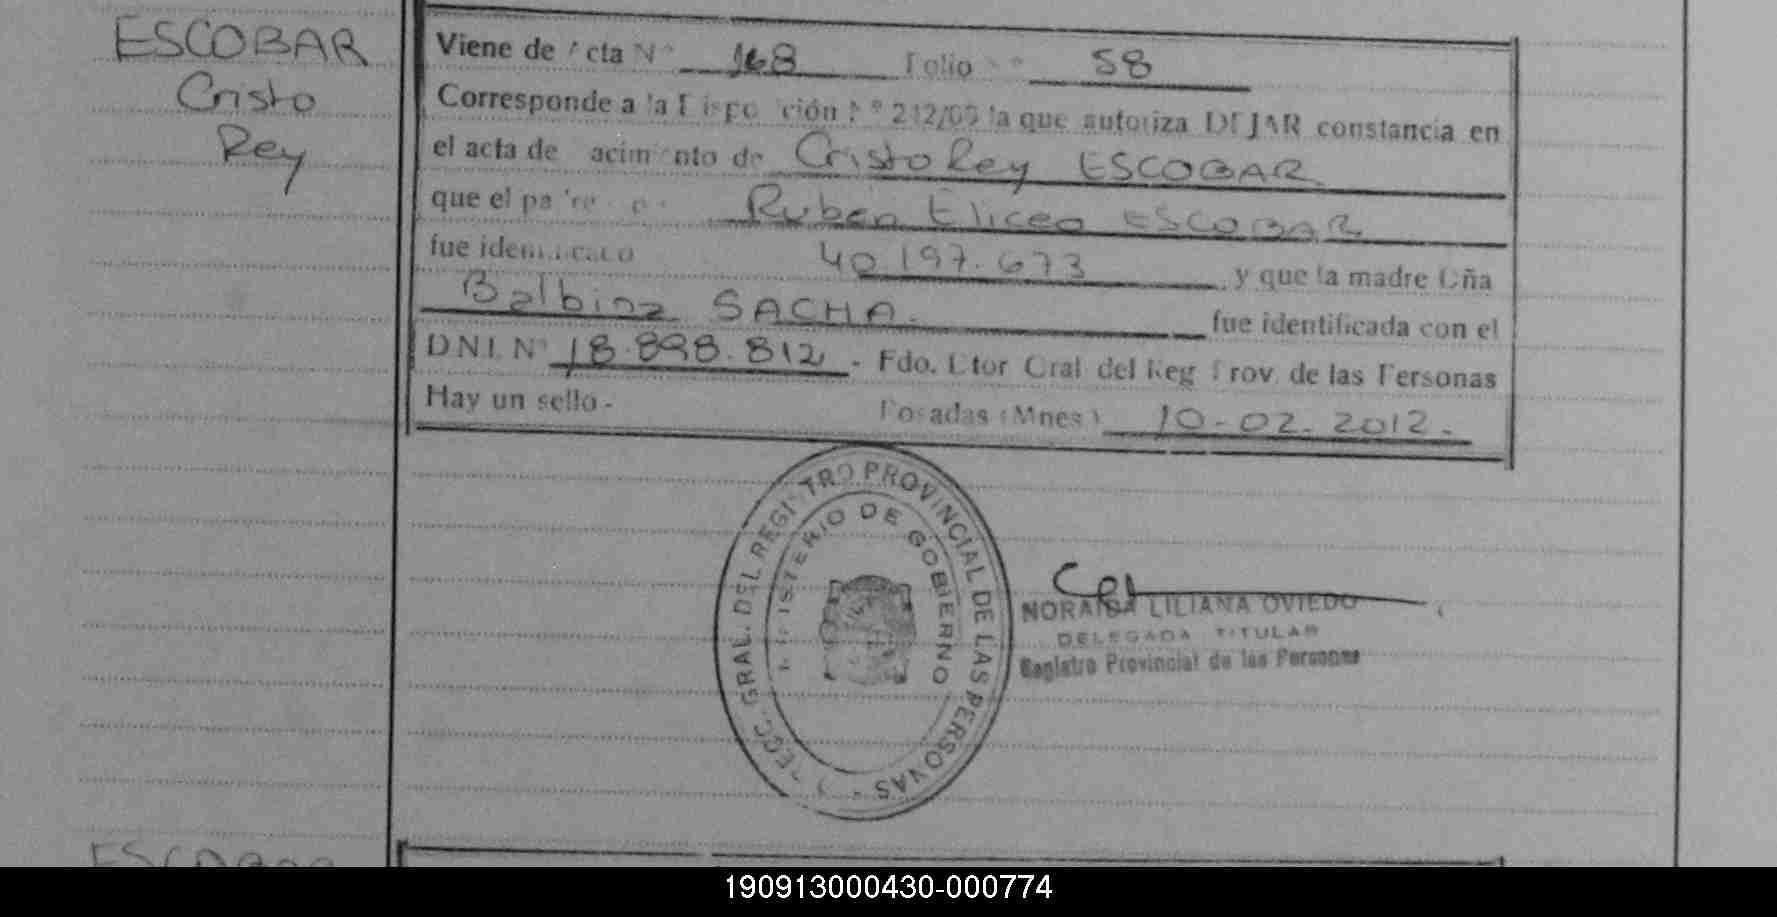 ESCOBAR
Cristo
Rey
Viene de Acta Nº 168 Folio Nº 58
Corresponde a la Disposición Nº 212/09 la que autoriza DEJAR constancia en
el acta de nacimiento de Cristo Rey ESCOBAR
que el padre Ruben Eliceo ESCOBAR
fue identificado 40197.673 y que la madre Dña
Balbina SACHA.
fue identificada con el
DNI. Nº 18.898.812 - Fdo. Dtor Gral del Reg Prov. de las Personas
Hay un sello - Posadas (Mnes) 10-02-2012.
DIRECC. GRAL. DEL REGISTRO PROVINCIAL DE LAS PERSONAS
MINISTERIO DE GOBIERNO
NORAIDA LILIANA OVIEDO
DELEGADA TITULAR
Registro Provincial de las Personas
ESCOBAR
190913000430-000774